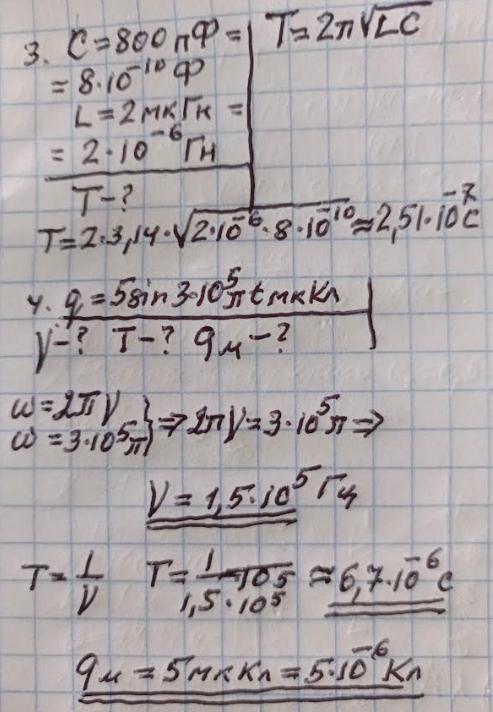 3. C = 800 пФ =
= 8·10⁻¹⁰ Ф
L = 2 мкГн =
= 2·10⁻⁶ Гн
T - ?
T = 2π√LC
T = 2·3,14·√2·10⁻⁶·8·10⁻¹⁰ ≈ 2,51·10⁻⁷ с
4. q = 5 sin 3·10⁵πt мкКл
ν - ? T - ? qм - ?
ω = 2πν
ω = 3·10⁵π } ⇒ 2πν = 3·10⁵π ⇒
ν = 1,5·10⁵ Гц
T = 1/ν T = 1/1,5·10⁵ ≈ 6,7·10⁻⁶ с
qм = 5 мкКл = 5·10⁻⁶ Кл